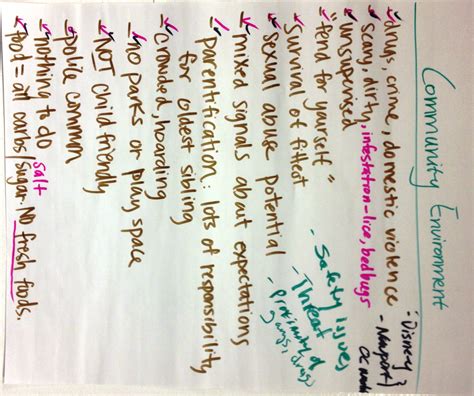 Community Environment
drugs, crime, domestic violence
scary, dirty, infestation-lice, bedbugs
unsupervised
"tend to yourself"
Survival of fittest
sexual abuse potential
mixed signals about expectations
parentification: lots of responsibility
for oldest sibling
crowded, hoarding
no parks or play space
NOT child friendly
police common
nothing to do
salt
food = all carbs/sugar. NO fresh foods.
Disney
- Newport
OC
- Safety Issues
- Threat
- Proximity of
gangs, drugs